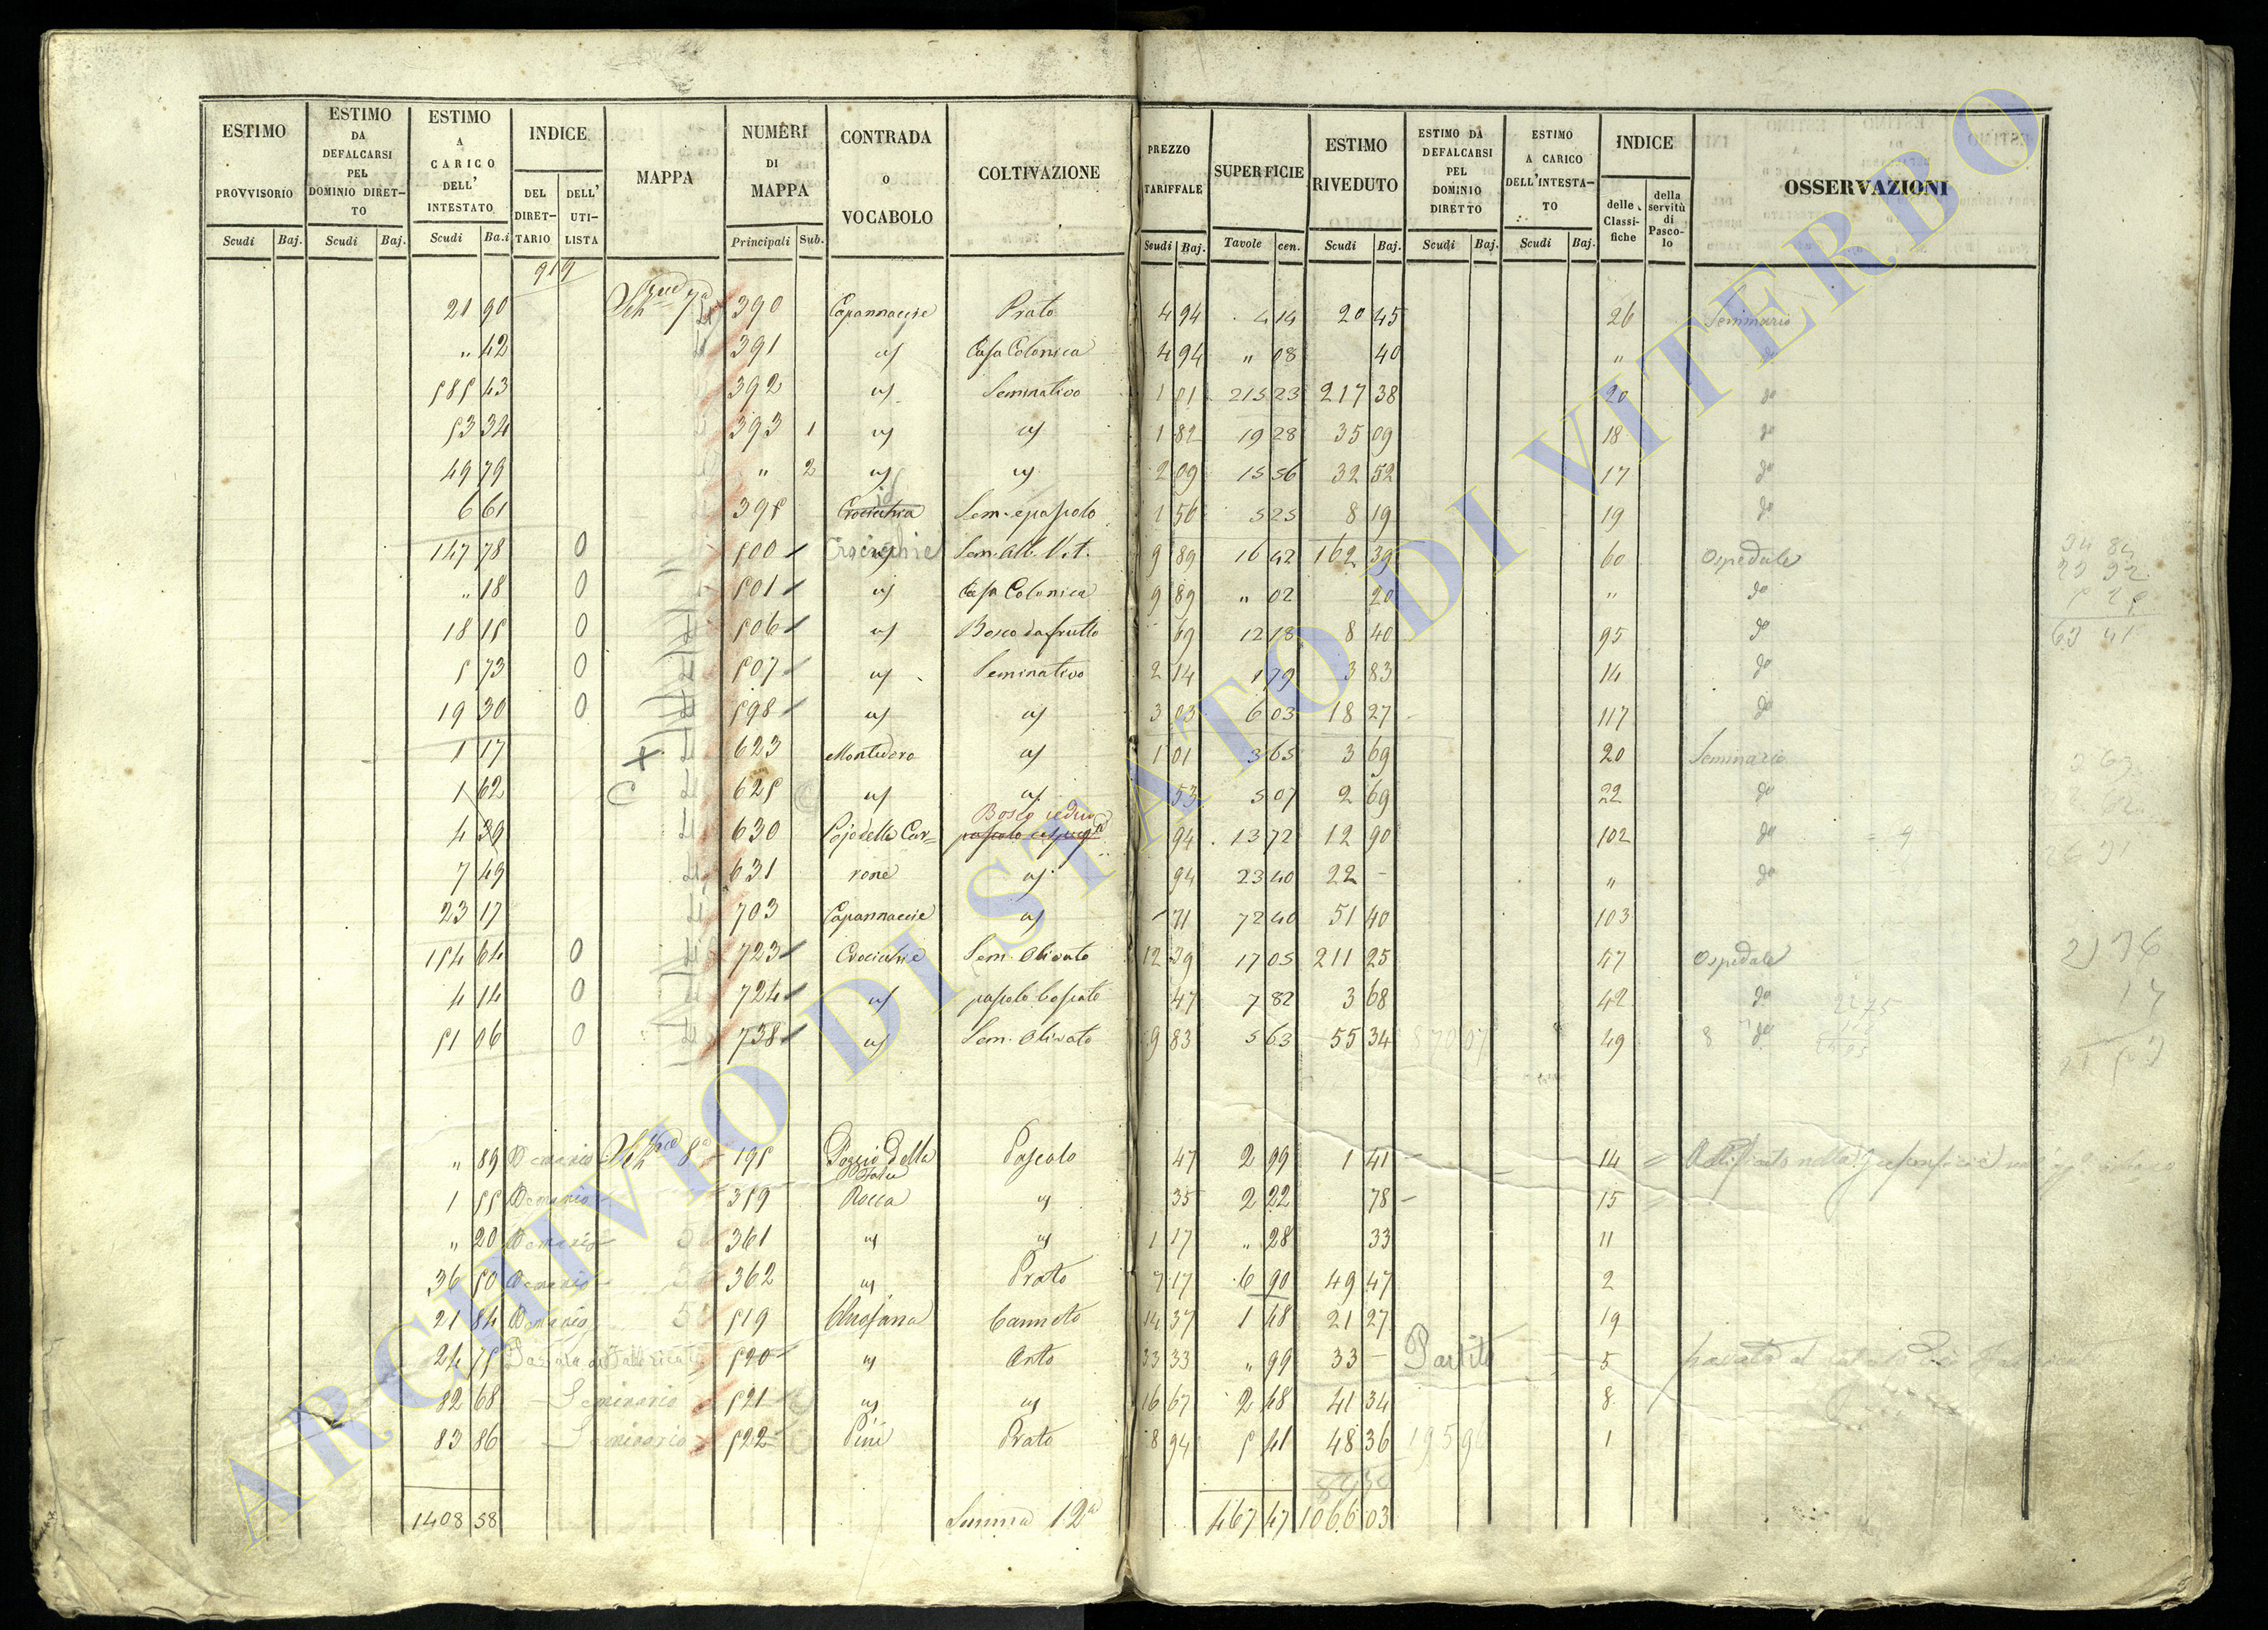 ESTIMO PROVVISORIO Scudi Baj.
ESTIMO DA DEFALCARSI PEL DOMINIO DIRETTO Scudi Baj.
ESTIMO A CARICO DELL' INTESTATO Scudi Ba.i
INDICE DEL DIRETTARIO DELL' UTILISTA
MAPPA
NUMERI DI MAPPA Principali Sub.
CONTRADA O VOCABOLO
COLTIVAZIONE
PREZZO TARIFFALE Scudi Baj.
SUPERFICIE Tavole cen.
ESTIMO RIVEDUTO Scudi Baj.
ESTIMO DA DEFALCARSI PEL DOMINIO DIRETTO Scudi Baj.
ESTIMO A CARICO DELL'INTESTATO Scudi Baj.
INDICE delle Classifiche della servitù di Pascolo
OSSERVAZIONI
919
21 90 390 Capannaccie Prato 4 94 4 14 20 45 26 Seminario
" 42 391 " Casa Colonica 4 94 " 08 40 " do
585 43 392 " Seminativo 1 01 215 23 217 38 20 do
53 34 393 1 " " 1 82 19 28 35 09 18 do
49 79 " 2 " " 2 09 15 56 32 52 17 do
6 61 395 id Crocicchia Sem. e pascolo 1 56 5 25 8 19 19 do
147 78 0 500 Crocicchie Sem. Alb. Vit. 9 89 16 42 162 39 60 Ospedale
" 18 0 501 " Casa Colonica 9 89 " 02 20 " do
18 15 0 506 " Bosco da frutto 69 12 18 8 40 95 do
5 73 0 507 " Seminativo 2 14 1 79 3 83 14 do
19 30 0 598 " " 3 03 6 03 18 27 117 do
1 17 623 Montedoro " 1 01 3 65 3 69 20 Seminario
1 62 625 " " 53 5 07 2 69 22 do
Bosco ceduo
4 39 630 Pojo della Car= 94 13 72 12 90 102 do
7 49 631 rone " 94 23 40 22 - " do
23 17 703 Capannaccie " 71 72 40 51 40 103
154 64 0 723 Crocicchie Sem. Olivato 12 39 17 05 211 25 47 Ospedale
4 14 0 724 " pascolo boscato 47 7 82 3 68 42 do
51 06 0 738 " Sem. Olivato 9 83 5 63 55 34 49 do
" 89 Demanio 8a 195 Poggio della Pascolo 47 2 99 1 41 14
1 55 Demanio 359 Rocca " 35 2 22 78 15
" 20 Demanio 361 " " 1 17 " 28 33 11
36 50 Demanio 362 " Prato 7 17 6 90 49 47 2
21 84 Demanio 519 Canneto 14 37 1 48 21 27 19
24 75 520 " Orto 33 33 " 99 33 - Partita 5
82 68 Seminario 521 " " 16 67 2 48 41 34 8
83 86 Seminario 522 Pini Prato 8 94 5 41 48 36 1
1408 58 Summa 12a 467 47 1066 03
ARCHIVIO DI STATO DI VITERBO